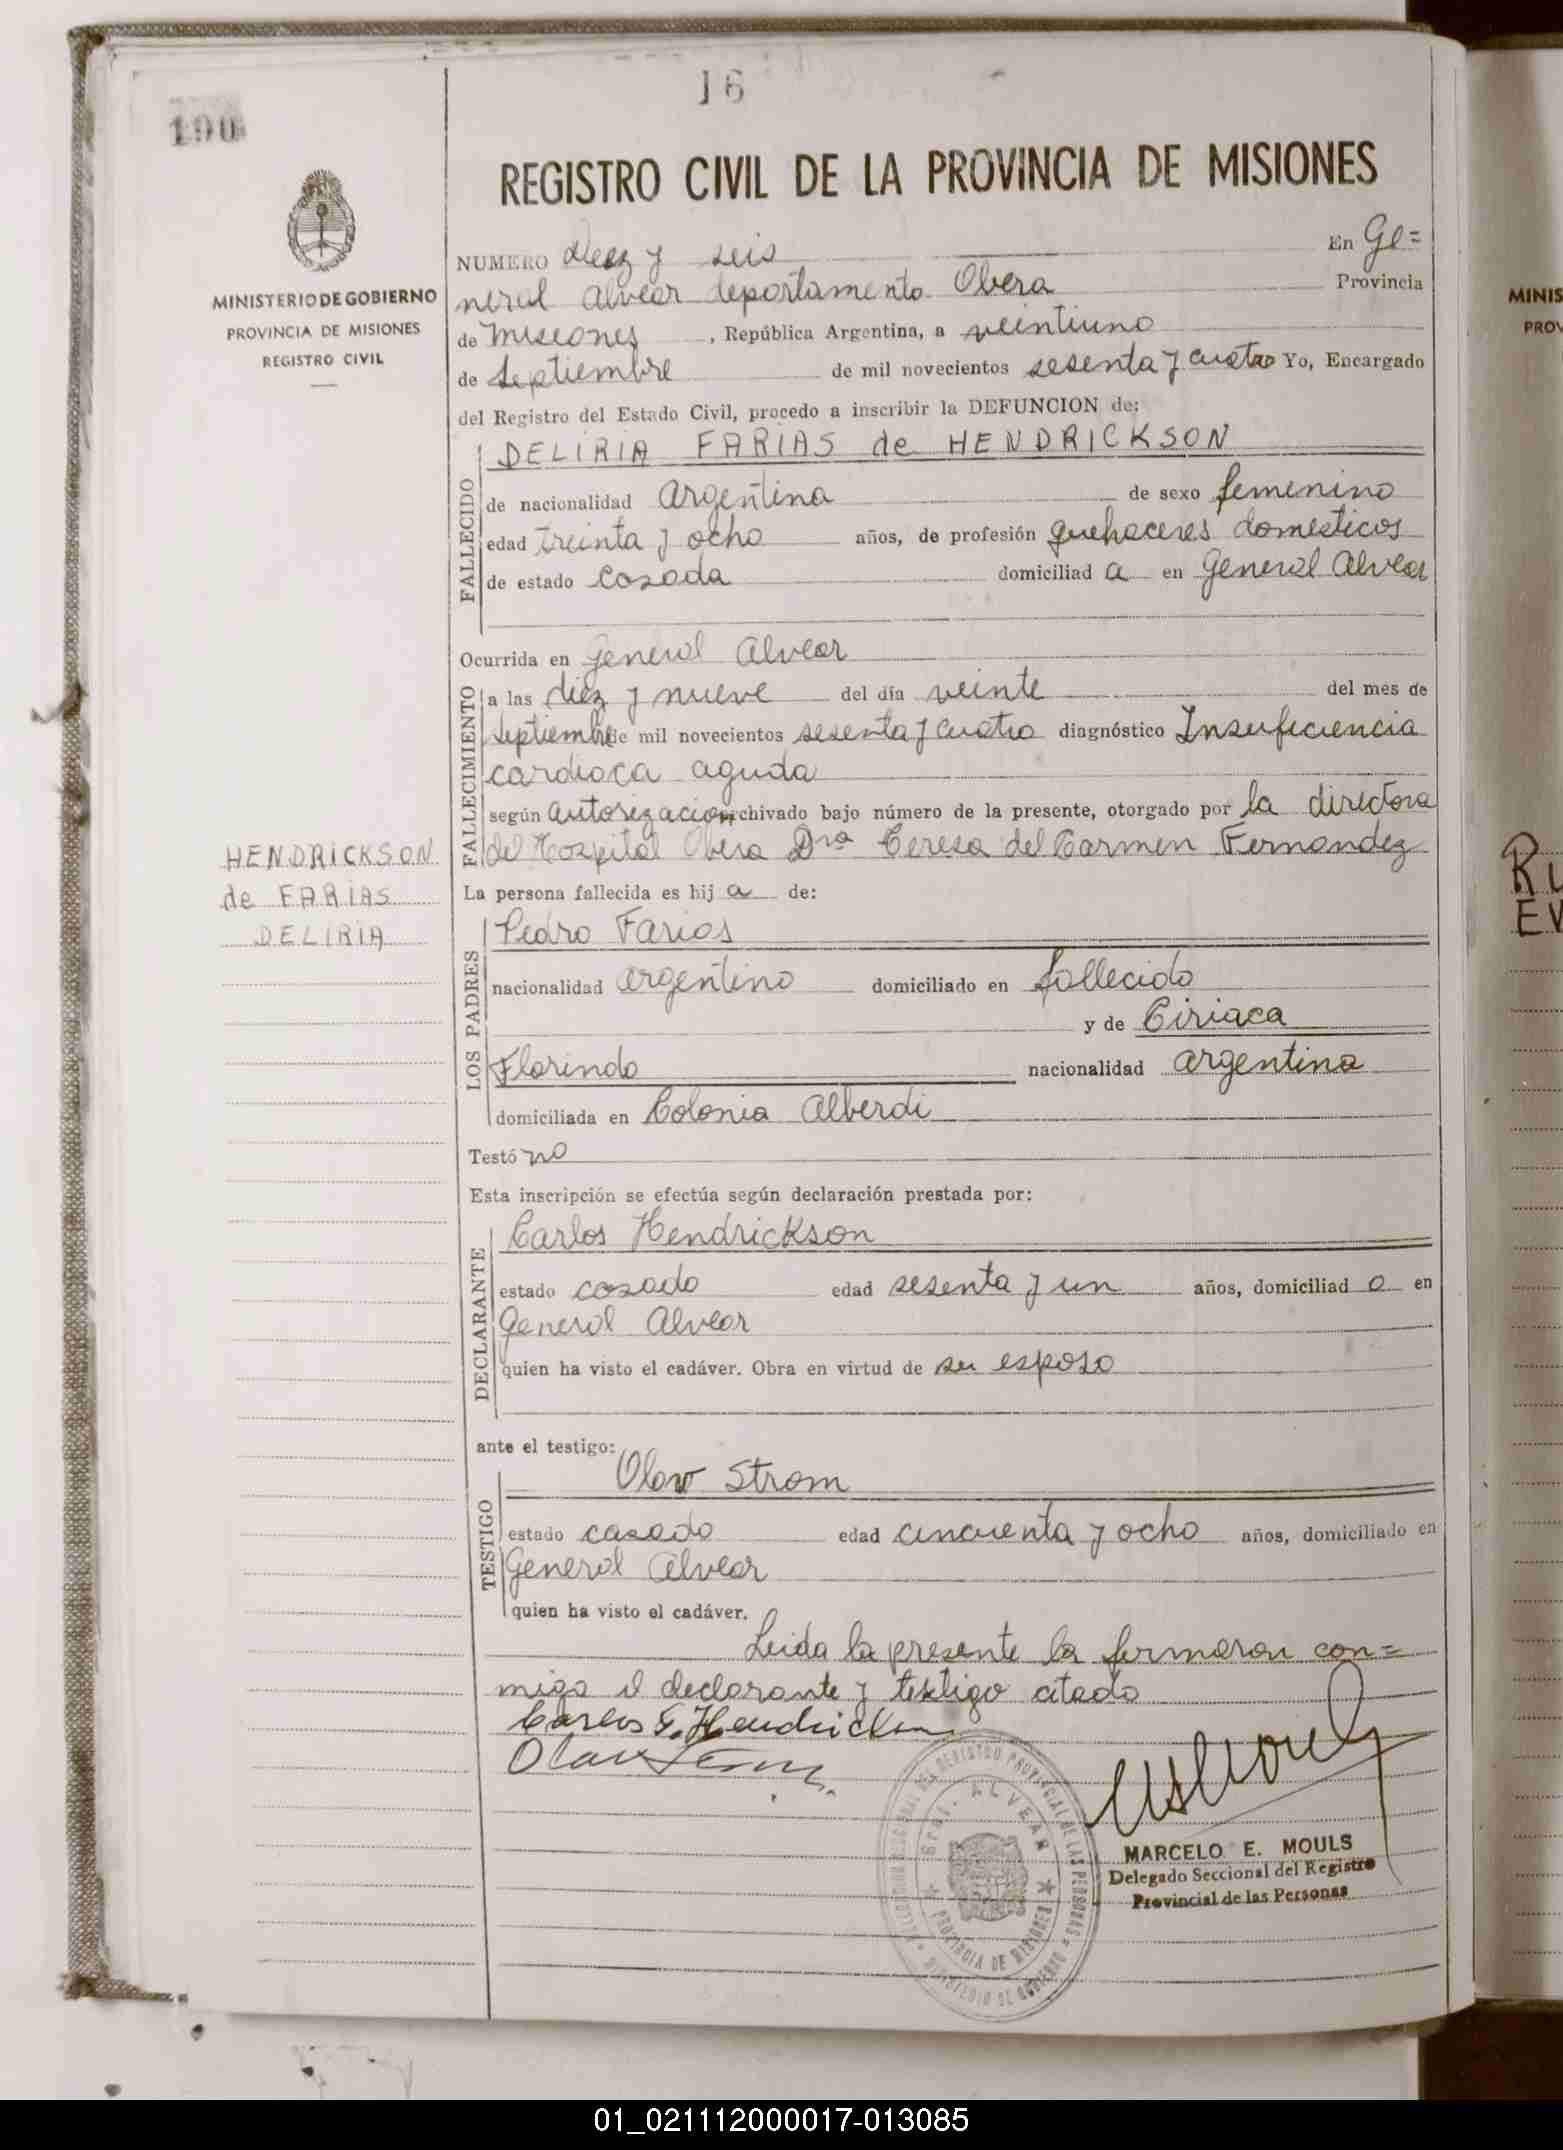 16
190
REGISTRO CIVIL DE LA PROVINCIA DE MISIONES
MINISTERIO DE GOBIERNO
PROVINCIA DE MISIONES
REGISTRO CIVIL
NUMERO diez y seis En Ge=
neral Alvear departamento Obera Provincia
de Misiones, República Argentina, a veintiuno
de Septiembre de mil novecientos sesenta y cuatro Yo, Encargado
del Registro del Estado Civil, procedo a inscribir la DEFUNCION de:
FALLECIDO
DELIRIA FARIAS de HENDRICKSON
de nacionalidad Argentina de sexo femenino
edad treinta y ocho años, de profesión quehaceres domesticos
de estado casada domiciliad a en General Alvear
Ocurrida en General Alvear
FALLECIMIENTO
a las diez y nueve del día veinte del mes de
Septiembre de mil novecientos sesenta y cuatro diagnóstico Insuficiencia
cardiaca aguda
según autorizacion archivado bajo número de la presente, otorgado por la directora
del Hospital Obera Dra Teresa del Carmen Fernandez
HENDRICKSON
de FARIAS
DELIRIA
La persona fallecida es hij a de:
LOS PADRES
Pedro Farias
nacionalidad argentino domiciliado en fallecido
y de Ciriaca
Florindo nacionalidad argentina
domiciliada en Colonia Alberdi
Testó no
Esta inscripción se efectúa según declaración prestada por:
DECLARANTE
Carlos Hendrickson
estado casado edad sesenta y un años, domiciliad o en
General Alvear
quien ha visto el cadáver. Obra en virtud de su esposo
ante el testigo:
TESTIGO
Olav Strom
estado casado edad cincuenta y ocho años, domiciliado en
General Alvear
quien ha visto el cadáver.
Leida la presente la firmaron con=
migo el declarante y testigo citado
Carlos G. Hendrickson
Olav Strom
DELEGACION SECCIONAL DEL REGISTRO PROVINCIAL DE LAS PERSONAS
MINISTERIO DE GOBIERNO
Gral. ALVEAR
PROVINCIA DE MISIONES
MARCELO E. MOULS
Delegado Seccional del Registro
Provincial de las Personas
MINIS
PROV
RU
EV
01_021112000017-013085